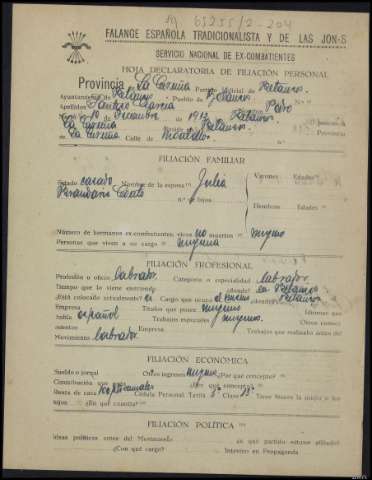 65255/2-204
FALANGE ESPAÑOLA TRADICIONALISTA Y DE LAS JON-S
SERVICIO NACIONAL DE EX-COMBATIENTES
HOJA DECLARATORIA DE FILIACIÓN PERSONAL
Provincia La Coruña Partido judicial de Betanzos.
Ayuntamiento de Betanzos Pueblo de N.º
Apellidos García Pedro
10 Diciembre de 1912 Betanzos Provincia
La Coruña Betanzos.
La Coruña Calle de
FILIACIÓN FAMILIAR
Estado casado Nombre de la esposa Julia Varones Edades
N.º de hijos
Hembras Edades
Número de hermanos ex-combatientes: vivos no muertos ninguno
Personas que viven a su cargo ninguna
FILIACIÓN PROFESIONAL
Profesión u oficio labrador. Categoría o especialidad labrador.
Tiempo que lo viene ejerciendo ¿dónde? en Betanzos
¿Está colocado actualmente? si Cargo que ocupa el mismo ¿dónde? Betanzos
Empresa Títulos que posee ninguno Idiomas que
habla español Trabajos especiales ninguno. Otros conoci-
mientos Empresa Trabajos que realizaba antes del
Movimiento labrador.
FILIACIÓN ECONÓMICA
Sueldo o jornal Otros ingresos ninguno ¿Por qué concepto?
Contribución que ¿Por qué concepto?
Renta de casa Cédula Personal Tarifa Clase 13ª Tiene bienes la mujer o los
hijos ¿En qué cuantía?
FILIACIÓN POLÍTICA
Ideas políticas antes del Movimiento ¿a qué partido estuvo afiliado?
¿Con qué cargo? Intervino en Propaganda